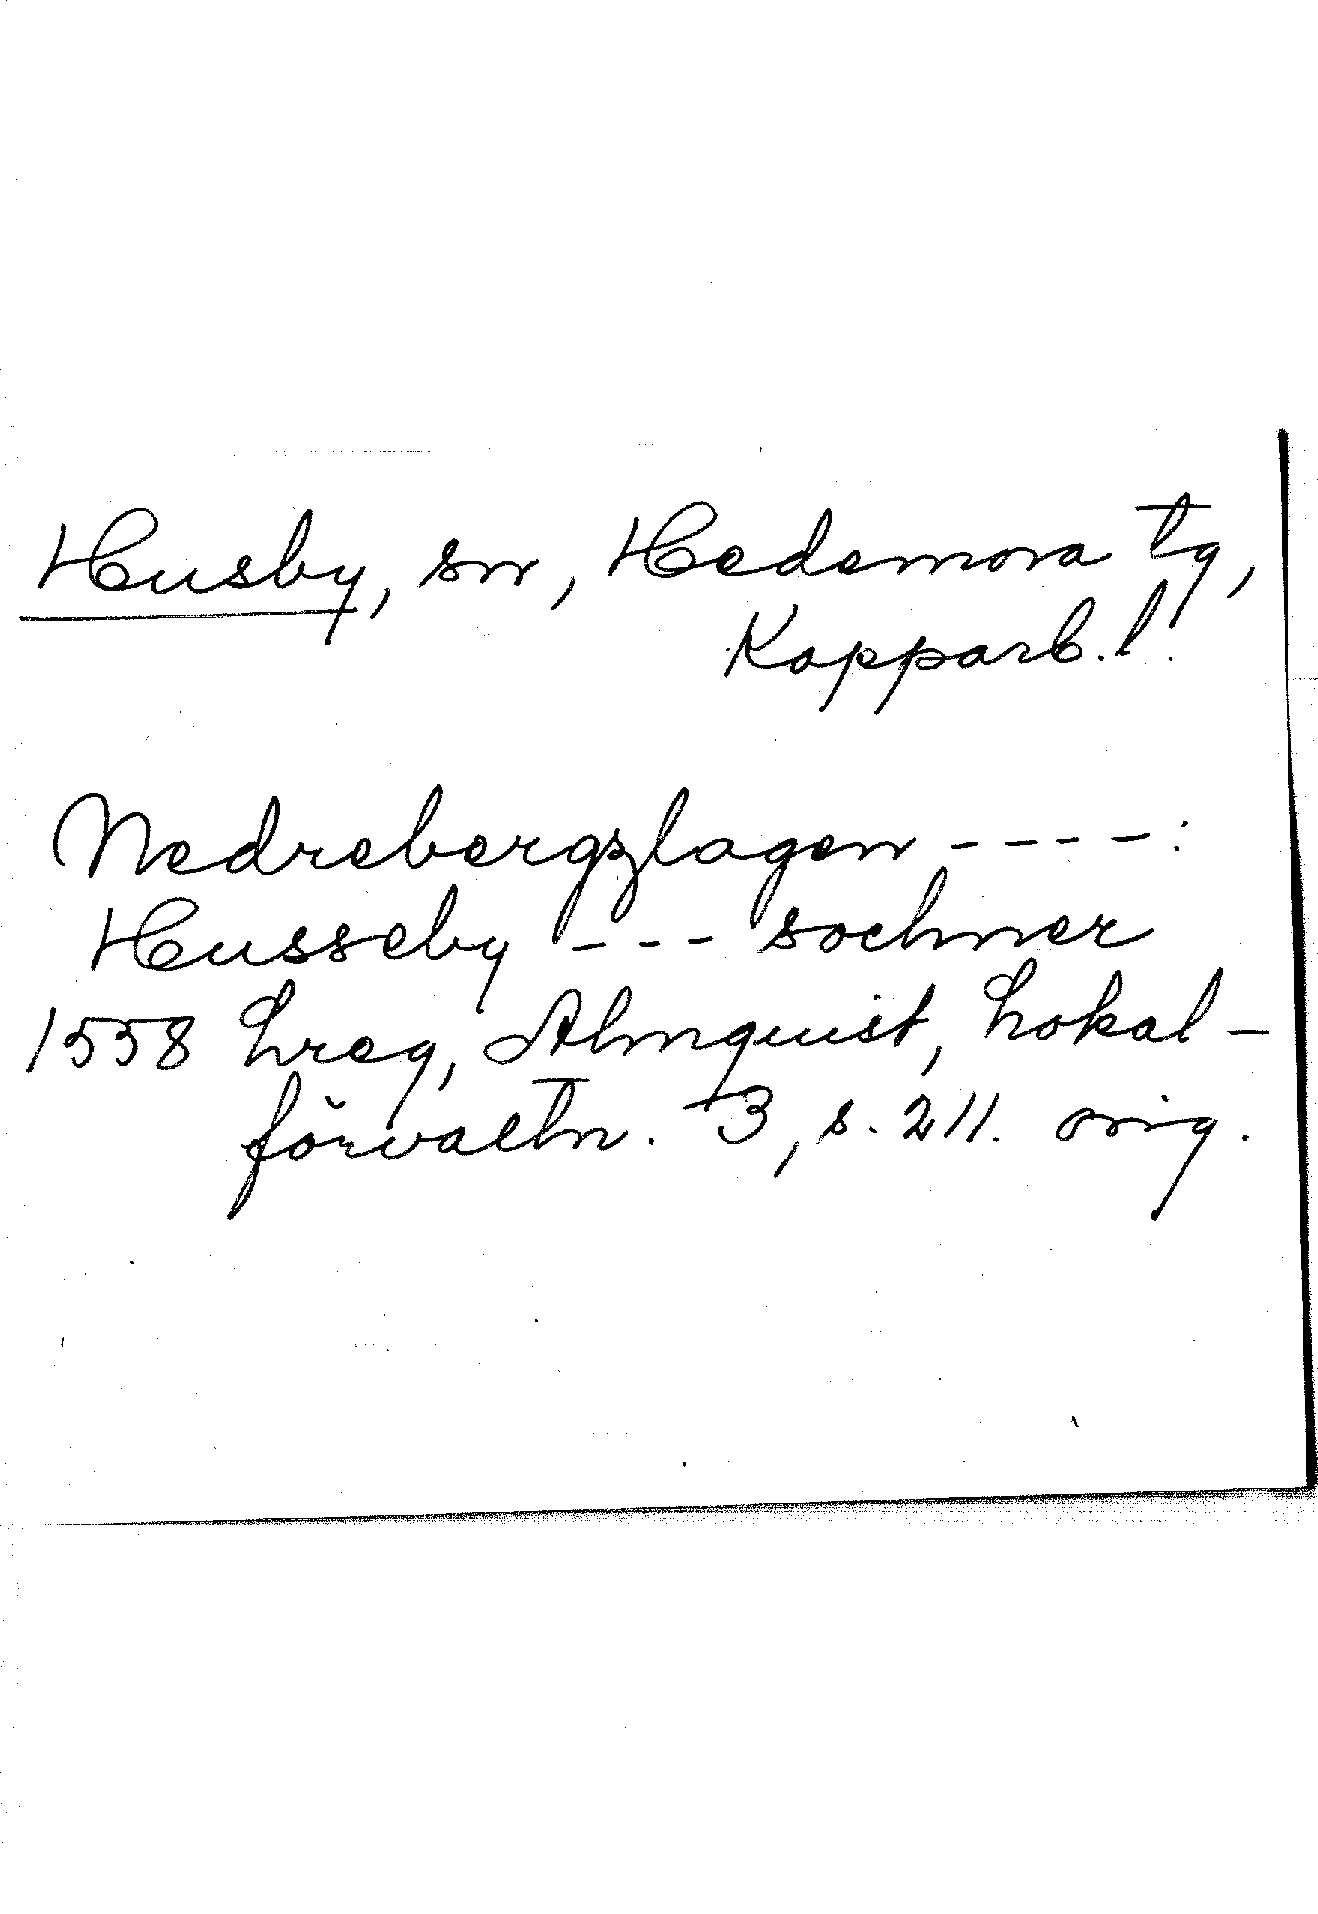 Husby, sn, Hedemora tg,
Kopparb. l.
Nedrebergzlagen ----:
Husseby --- sochner
1558 Lreg, Almquist, Lokal-
förvaltn. 3, s. 211. orig.